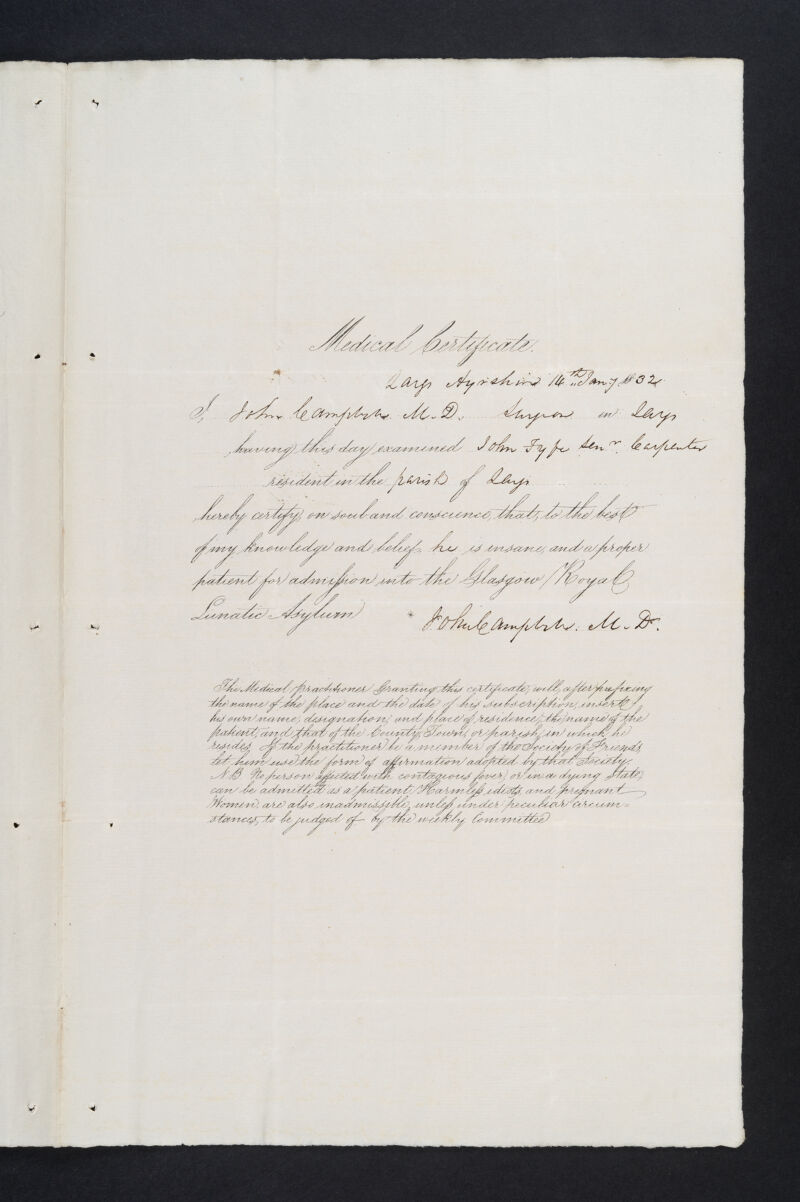 Medical Certificate.
Largs Ayrshire 14th Jany 1832
I, John Campbell M.D. Surgeon in Largs
having this day examined John Fyfe Senr. Carpenter
resident in the parish of Largs
hereby certify, on soul and conscience, that, to the best
of my knowledge and belief, he is insane, and a proper
patient for admission into the Glasgow Royal
Lunatic Asylum
John Campbell. M.D.
The Medical practitioner Granting this certificate, will, after prefixing
the name of the place and the date of his subscription, insert
his own name, designation, and place of residence, the name of the
patient, and that of the County, Town, or parish, in which he
resides. If the practitioner be a member of the Society of Friends
let him use the form of affirmation adopted by that Society.
N.B. No person affected with contagious fever, or in a dying State,
can be admitted as a patient, Harmless idiots, and pregnant
Women, are also inadmissible, unless under peculiar circum-
stances, to be judged of by the weekly Committee